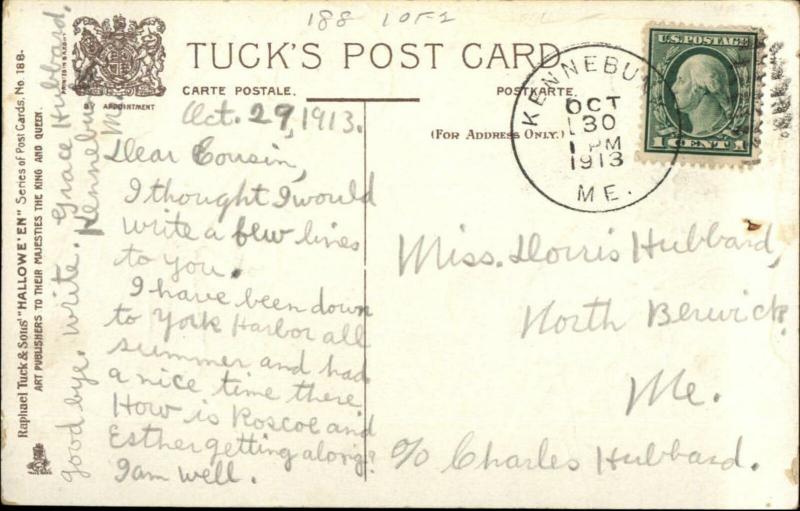 188 1 OF 2
TUCK'S POST CARD.
CARTE POSTALE.
POSTKARTE.
BY APPOINTMENT
(FOR ADDRESS ONLY.)
KENNEBUN
OCT
30
1 PM
1913
ME.
U.S. POSTAGE
1 CENT 1
Oct. 29, 1913.
Dear Cousin,
I thought I would
write a few lines
to you.
I have been down
to York Harbor all
summer and had
a nice time there
How is Roscoe and
Esther getting along?
I am well.
good bye. write. Grace Hubbard.
Kennebunk
Me.
Miss. Dorris Hubbard,
North Berwick
Me.
c/o Charles Hubbard.
Raphael Tuck & Sons' "HALLOWE'EN" Series of Post Cards, No. 188-
ART PUBLISHERS TO THEIR MAJESTIES THE KING AND QUEEN.